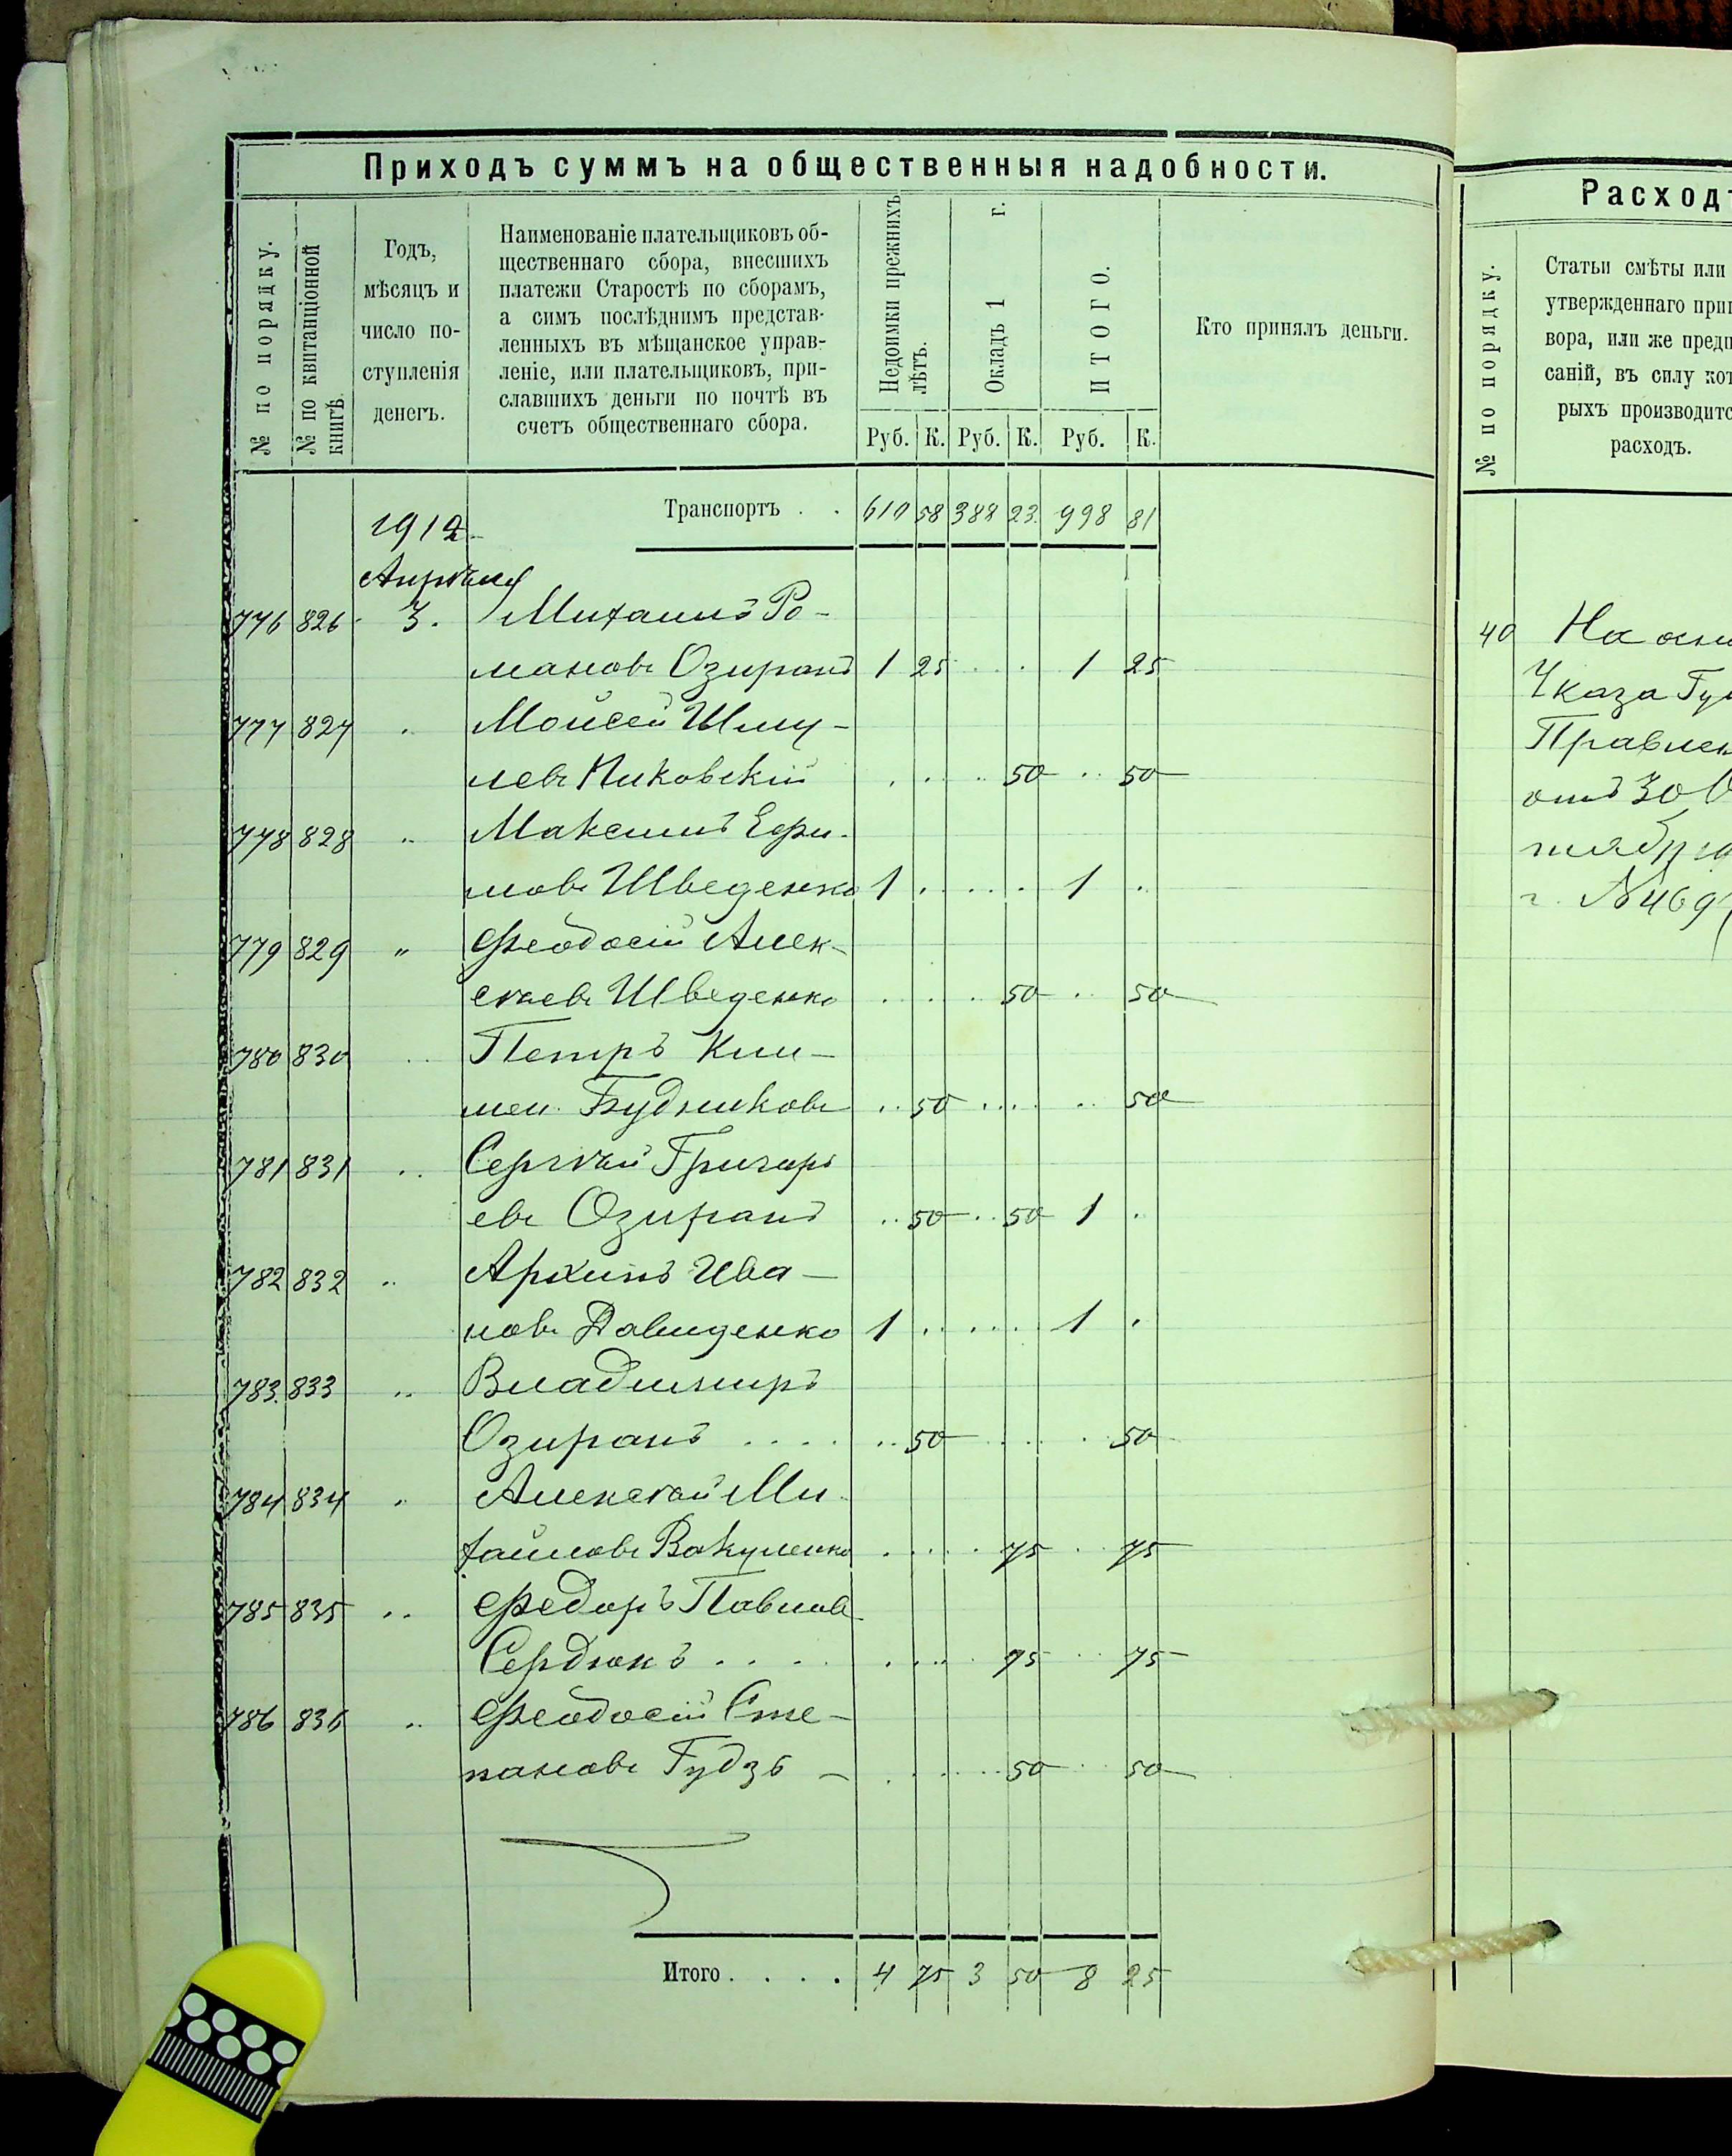 Приходъ суммъ на общественныя надобности.
№ по порядку.
№ по квитанціонной книгѣ.
Годъ,
мѣсяцъ и
число по-
ступленія
денегъ.
Наименованіе плательщиковъ об-
щественнаго сбора, внесшихъ
платежи Старостѣ по сборамъ,
а симъ послѣднимъ представ-
ленныхъ въ мѣщанское управ-
леніе, или плательщиковъ, при-
славшихъ деньги по почтѣ въ
счетъ общественнаго сбора.
Недоимки прежнихъ
лѣтъ.
Окладъ 1 г.
ИТОГО.
Кто принялъ деньги.
Руб. К. Руб. К. Руб. К.
Транспортъ . . 610 58 388 23 998 81
1912
Апрѣля
776 826 3. Михаилъ Ро-
мановъ Озиранъ 1 25 . . 1 25
777 827 . Мойсей Шму-
левъ . . . 50 . . 50
778 828 .. Максимъ Ефи-
мовъ Шведенко 1 . . . . 1 .
779 829 " Феодосій Алек-
сѣевъ Шведенко . . . . 50 . . 50
780 830 .. Петръ Кли-
мен. Будниковъ .. 50 .... .. 50
781 831 .. Сергѣй Григорь
евъ Озиранъ .. 50 .. 50 1 .
782 832 .. Архипъ Ива-
новъ Давиденко 1 . . . . . 1 .
783. 833 .. Владиміръ
Озиранъ . . . . .. 50 . . . . 50
784 834 .. Алексѣй Ми-
хайловъ Вакуленко . . . . 75 . . 75
785 835 .. Федоръ Павлов
Сердюкъ . . . . . . . . 75 . . 75
786 836 .. Феодосій Сте-
пановъ Гудзь - . . . . 50 . . 50
Итого. . . . . 4 75 3 50 8 25
Расход
№ по порядку.
Статьи смѣты или
утвержденнаго при
вора, или же пред
саній, въ силу кот
рыхъ производитс
расходъ.
40 На осн
Указа Гу
Правлен
отъ 30
тября
г. №469